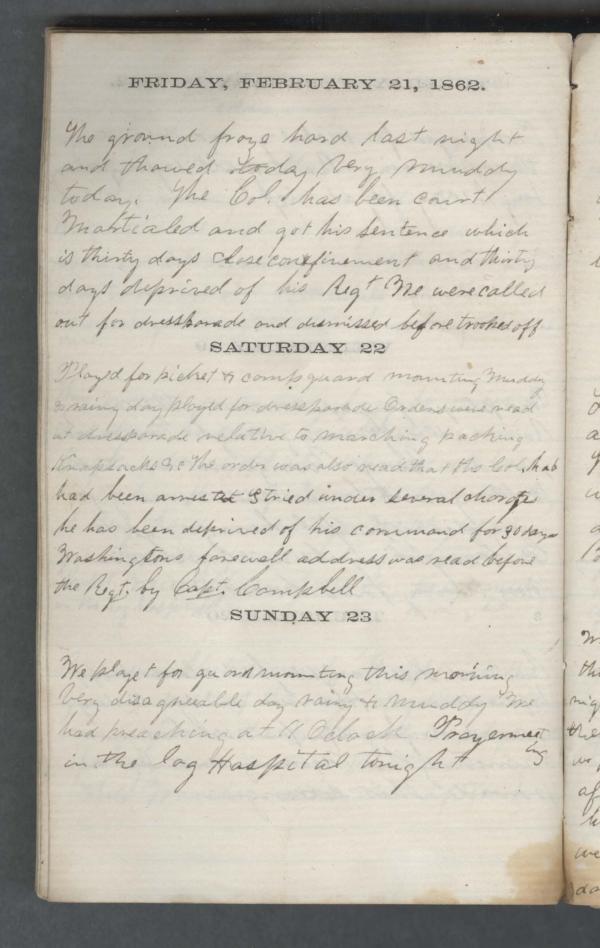 FRIDAY, FEBRUARY 21, 1862.
The ground froze hard last night
and thawed today very muddy
today. The Col. has been court
Martialed and got his sentence which
is thirty days close confinement and thirty
days deprived of his Regt We were called
out for dressparade and dismissed before trooked off
SATURDAY 22
Played for picket & campguard mounting Muddy
& rainy day played for dressparade Orders were read
at dressparade relative to marching packing
Knapsacks &c The order was also read that the Col. has
had been arrested & tried under several charges
he has been deprived of his command for 30 days
Washingtons farewell address was read before
the Regt. by Capt. Campbell
SUNDAY 23
We playet for guardmounting this morning
Very disagreeable day rainy & muddy We
had preaching at 11 Oclock Prayermeet
ing
in the log Hospital tonight